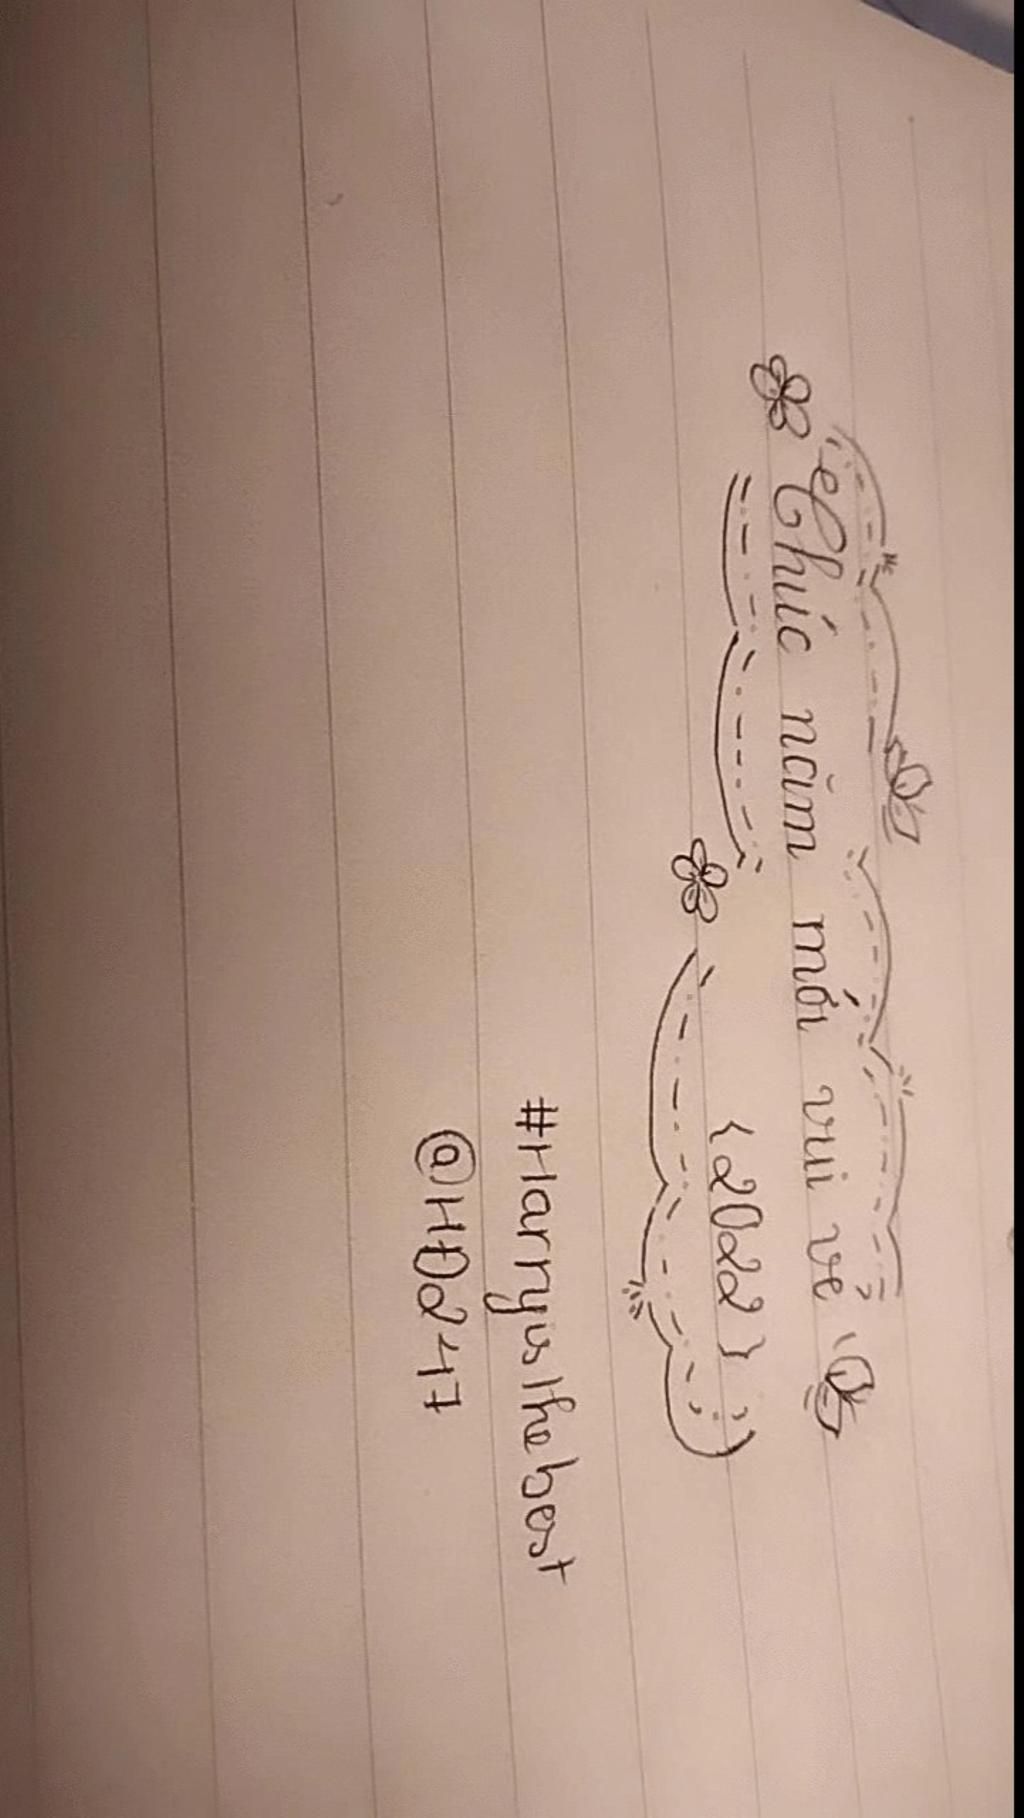 Chúc năm mới vui vẻ
{2022}
#Harryisthebest
@HĐ247